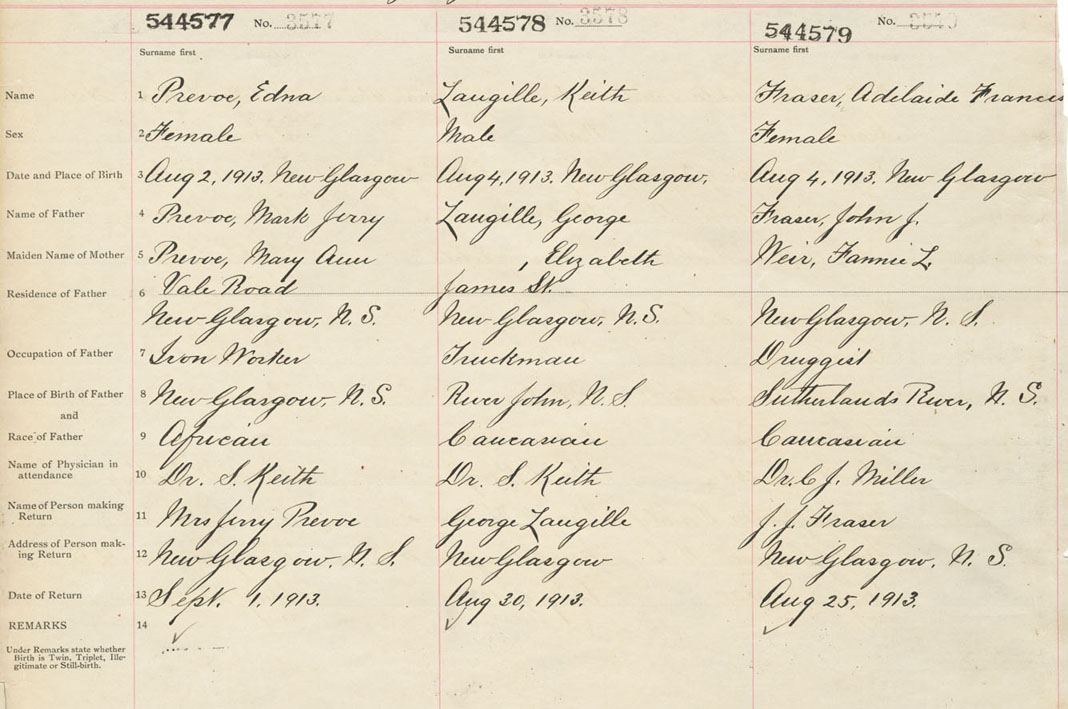 544577 No. 3577 544578 No. 3578 544579 No.
Surname first Surname first Surname first
Name 1 Prevoe, Edna Langille, Keith Fraser, Adelaide Francis
Sex 2 Female Male Female
Date and Place of Birth 3 Aug 2, 1913. New Glasgow Aug 4, 1913. New Glasgow, Aug 4, 1913. New Glasgow
Name of Father 4 Prevoe, Mark Jerry Langille, George Fraser, John J.
Maiden Name of Mother 5 Prevoe, Mary Ann , Elizabeth Weir, Fannie L.
Residence of Father 6 Vale Road James St.
New Glasgow, N.S. New Glasgow, N.S. New Glasgow, N. S.
Occupation of Father 7 Iron Worker Truckman Druggist
Place of Birth of Father 8 New Glasgow, N.S. River John, N.S. Sutherlands River, N.S.
and
Race of Father 9 African Caucasian Caucasian
Name of Physician in
attendance 10 Dr. S. Keith Dr. S. Keith Dr. C J. Miller
Name of Person making
Return 11 Mrs Jerry Prevoe George Langille J. J. Fraser
Address of Person mak-
ing Return 12 New Glasgow. N. S. New Glasgow New Glasgow. N. S.
Date of Return 13 Sept. 1, 1913. Aug 30, 1913. Aug 25, 1913.
REMARKS 14
Under Remarks state whether
Birth is Twin, Triplet, Ille-
gitimate or Still-birth.